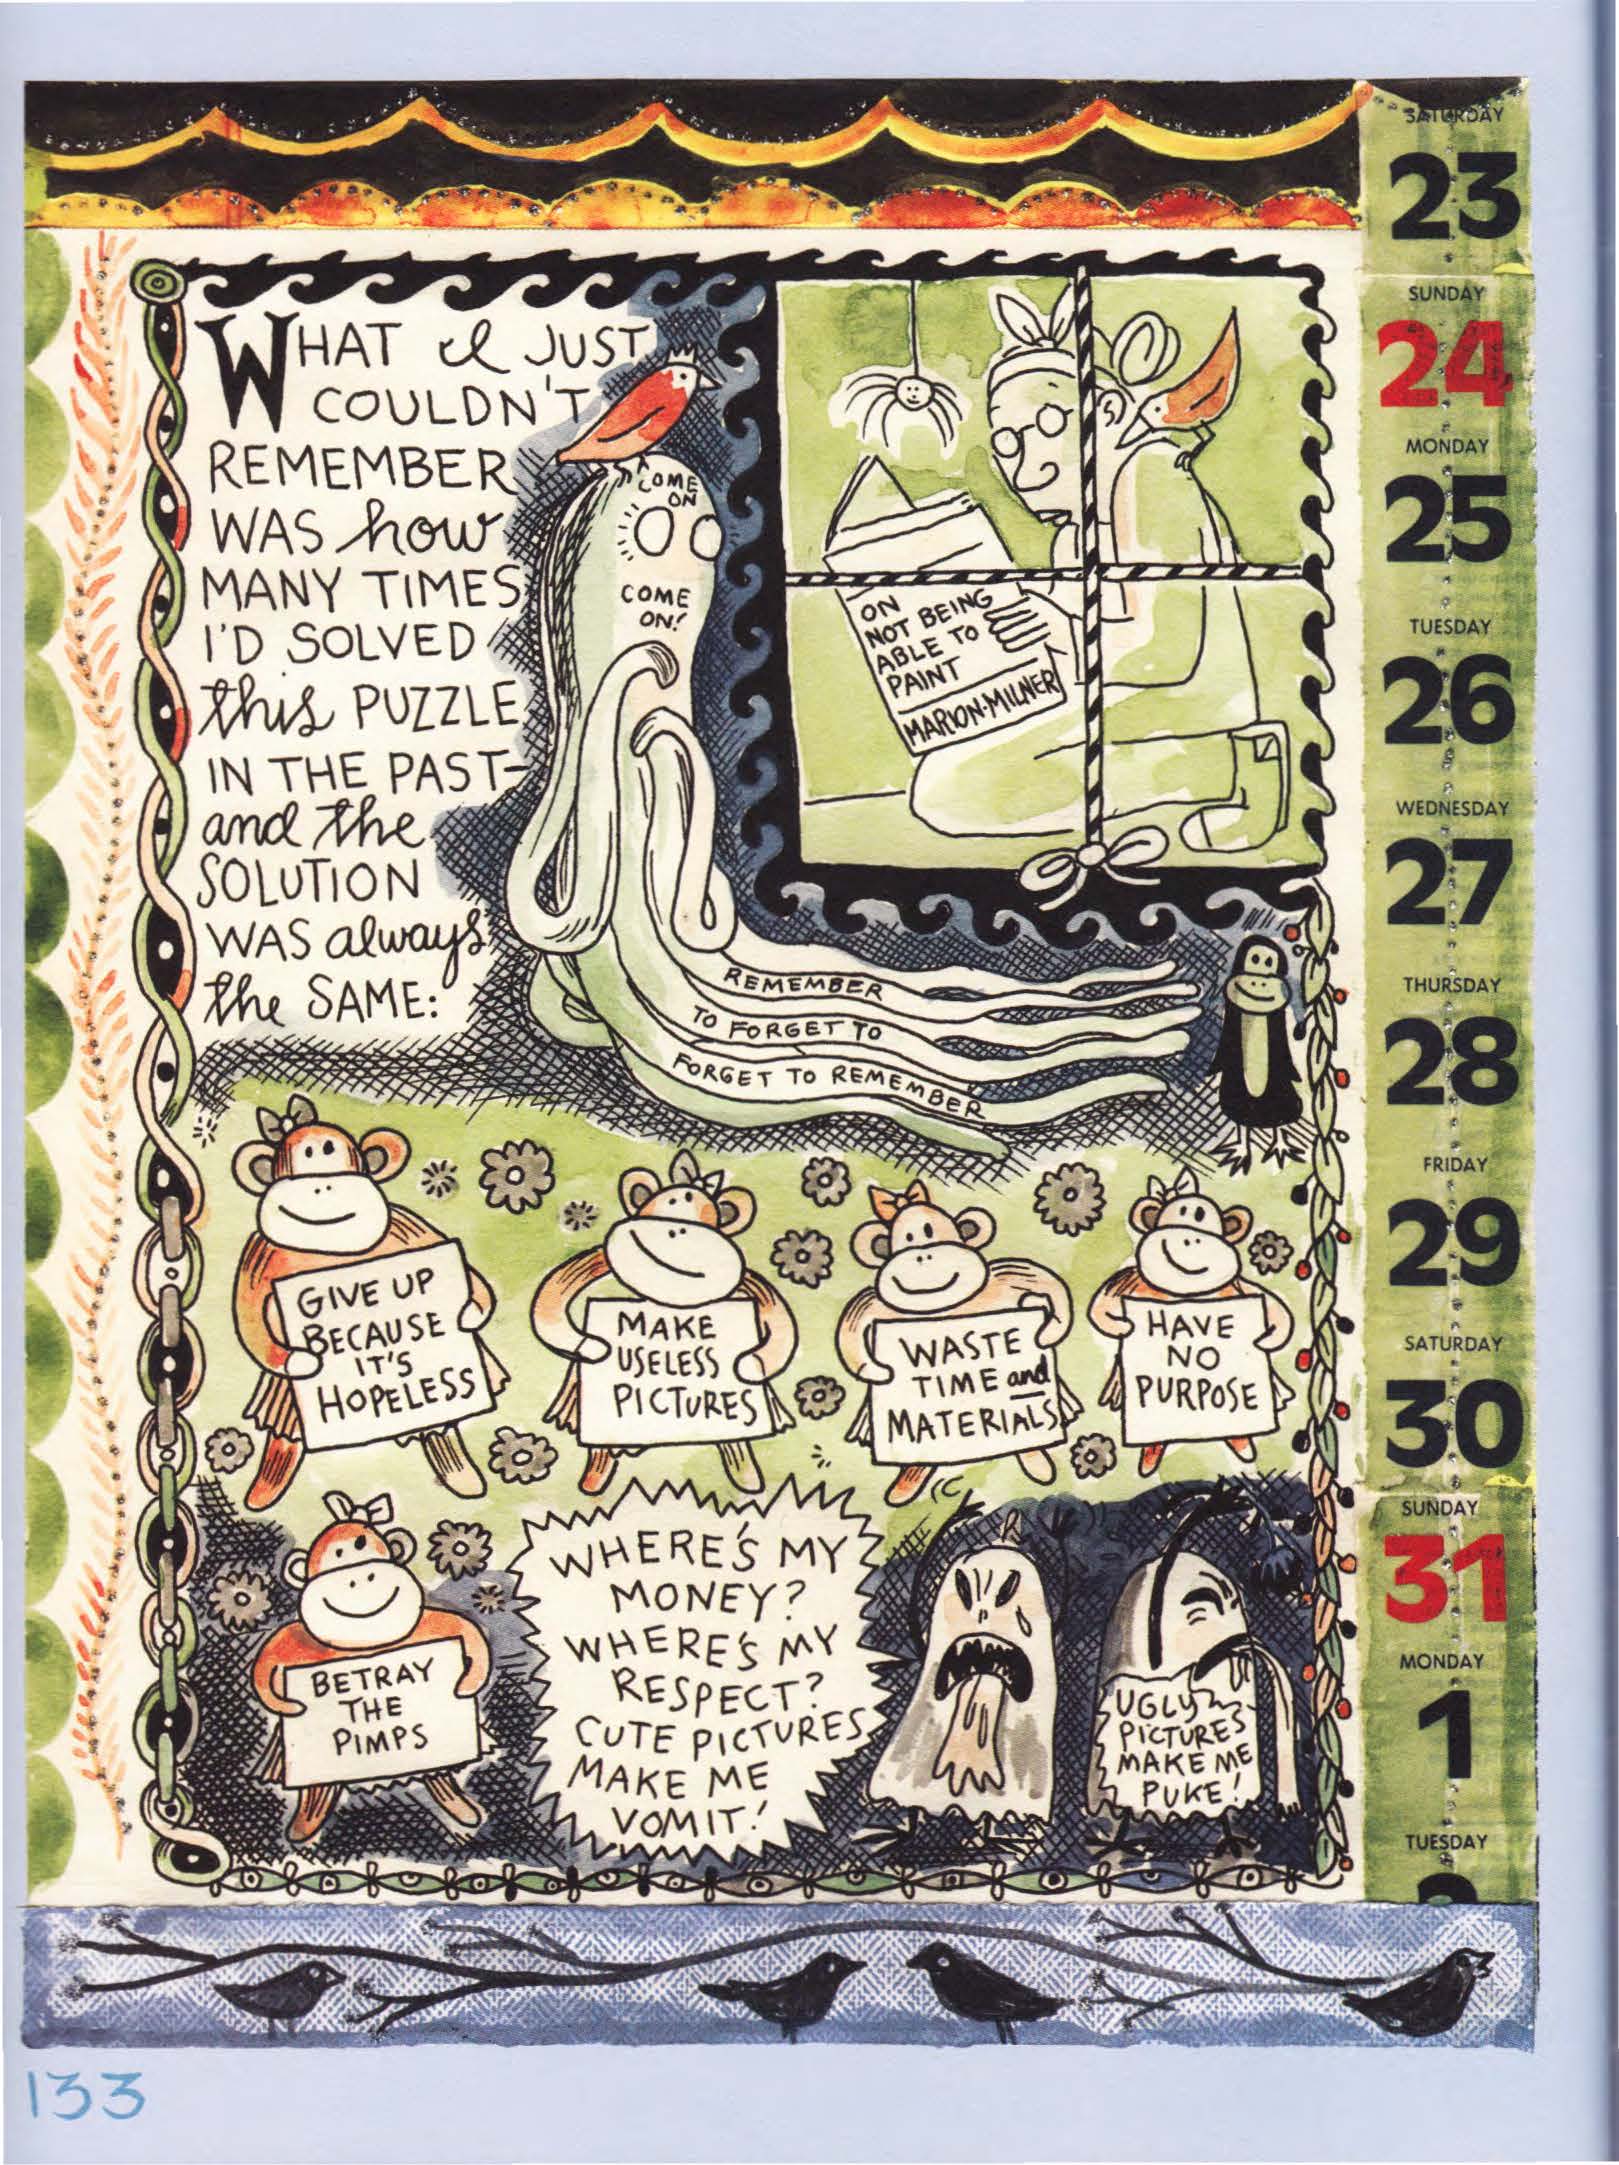 WHAT I JUST
COULDN'T
REMEMBER
WAS how
MANY TIMES
I'D SOLVED
this PUZZLE
IN THE PAST-
and the
SOLUTION
WAS always
the SAME:
COME
ON
COME
ON!
ON
NOT BEING
ABLE TO
PAINT
MARION·MILNER
REMEMBER
TO FORGET TO
FORGET TO REMEMBER
GIVE UP
BECAUSE
IT'S
HOPELESS
MAKE
USELESS
PICTURES
WASTE
TIME and
MATERIALS
HAVE
NO
PURPOSE
BETRAY
THE
PIMPS
WHERE'S MY
MONEY?
WHERE'S MY
RESPECT?
CUTE PICTURES
MAKE ME
VOMIT!
UGLY
PICTURES
MAKE ME
PUKE!
SATURDAY
23
SUNDAY
24
MONDAY
25
TUESDAY
26
WEDNESDAY
27
THURSDAY
28
FRIDAY
29
SATURDAY
30
SUNDAY
31
MONDAY
1
TUESDAY
133